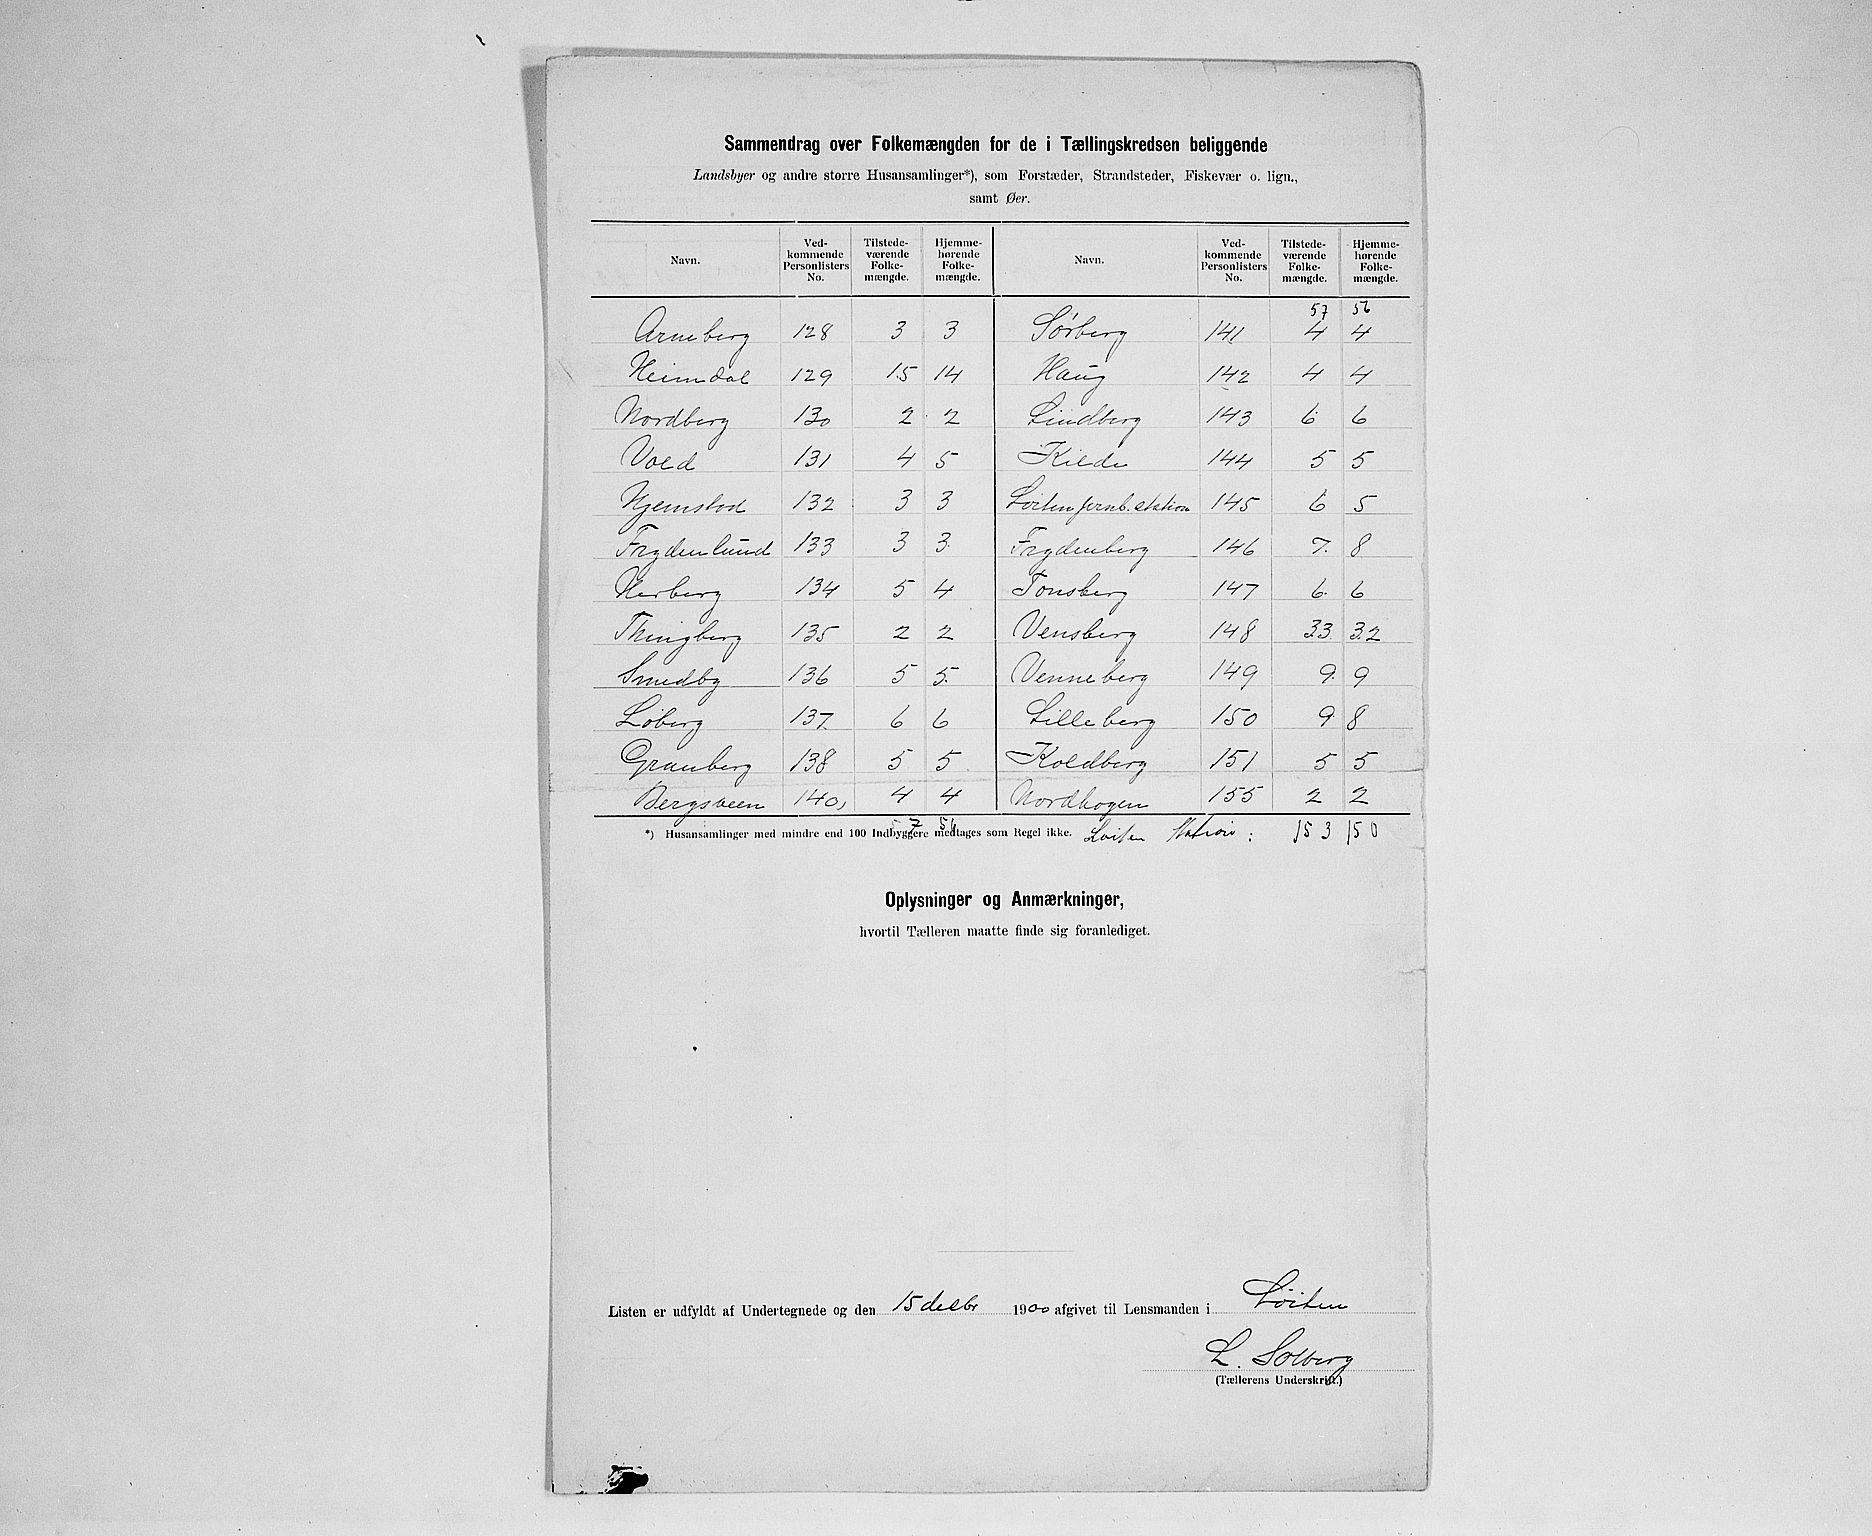 Sammendrag over Folkemængden for de i Tællingskredsen beliggende
Landsbyer og andre større Husansamlinger*), som Forstæder, Strandsteder, Fiskevær o. lign.,
samt Øer.
Navn. Ved-kommende Personlisters No. Tilstede-værende Folke-mængde. Hjemme-hørende Folke-mængde. Navn. Ved-kommende Personlisters No. Tilstede-værende Folke-mængde. Hjemme-hørende Folke-mængde.
57 56
Arneberg 128 3 3 Sørberg 141 4 4
Heimdal 129 15 14 Haug 142 4 4
Nordberg 130 2 2 Lindberg 143 6 6
Vold 131 4 5 Kilde 144 5 5
Hjemstad 132 3 3 Løiten jernb. station 145 6 5
Frydenlund 133 3 3 Frydenberg 146 7 8
Herberg 134 5 4 Tonsberg 147 6 6
Thingberg 135 2 2 Vensberg 148 33 32
Smedby 136 5 5 Venneberg 149 9 9
Løberg 137 6 6 Lilleberg 150 9 8
Granberg 138 5 5 Koldberg 151 5 5
Bergsveen 140, 4 4 Nordhagen 155 2 2
57 56
*) Husansamlinger med mindre end 100 Indbyggere medtages som Regel ikke. Løiten Station: 153 150
Oplysninger og Anmærkninger,
hvortil Tælleren maatte finde sig foranlediget.
Listen er udfyldt af Undertegnede og den 15 decbr 1900 afgivet til Lensmanden i Löiten
L. Solberg
(Tællerens Underskrift.)